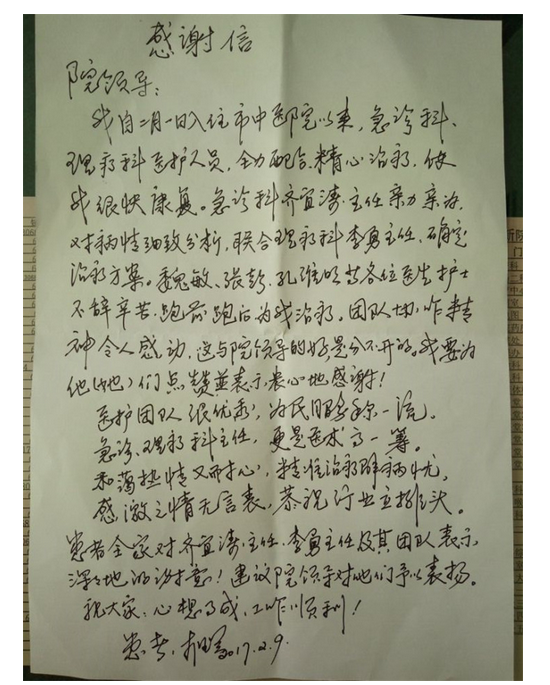 感谢信
院领导：
我自二月一日入住市中医院以来，急诊科、
理疗科医护人员，全力配合，精心治疗，使
我很快康复。急诊科齐宜涛主任亲力亲为，
对病情细致分析，联合理疗科李勇主任、确定
治疗方案。魏敏、张彭、孔维明等各位医生护士
不辞辛苦，跑前跑后为我治疗。团队协作精
神令人感动，这与院领导的好是分不开的。我要为
他（她）们点赞並表示衷心地感谢！
医护团队很优秀，为民服务称一流。
急诊、理疗科主任，更是医术高一筹。
和蔼热情又耐心，精准治疗除病忧，
感激之情无言表，恭祝行业立排头。
患者全家对齐宜涛主任、李勇主任及其团队表示
深深地的谢意！建议院领导对他们予以表扬。
祝大家、心想事成、工作顺利！
患者，2017.2.9.